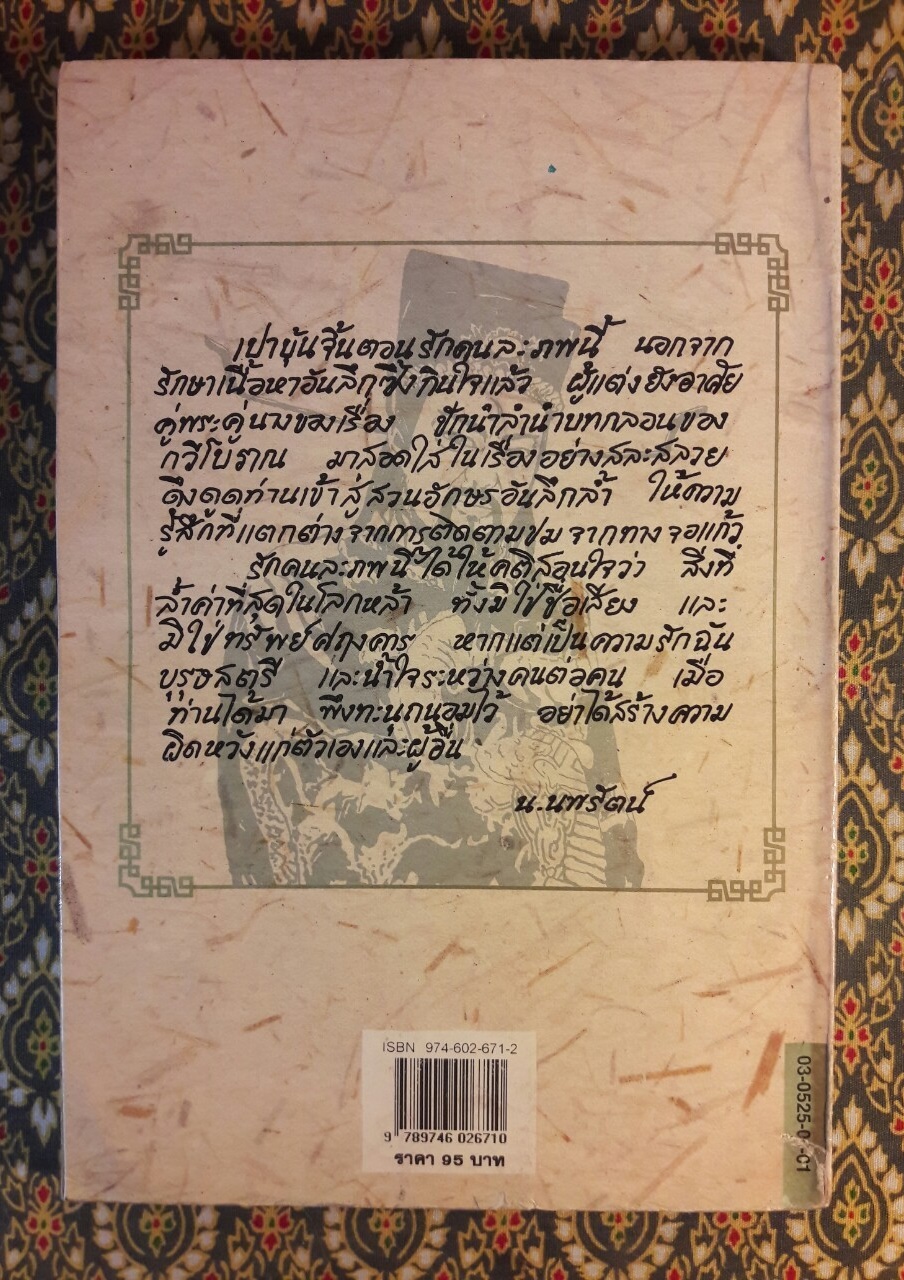 เปาบุ้นจิ้นตอนรักคนละภพนี้ นอกจาก
รักษาเนื้อหาอันลึกซึ้งกินใจแล้ว ผู้แต่งยังอาศัย
คู่พระคู่นางของเรื่อง ชักนำลำนำบทกลอนของ
กวีโบราณ มาสอดใส่ในเรื่องอย่างสละสลวย
ดึงดูดท่านเข้าสู่สวนอักษรอันลึกล้ำ ให้ความ
รู้สึกที่แตกต่างจากการติดตามชมจากทางจอแก้ว
รักคนละภพนี้ได้ให้คติสอนใจว่า สิ่งที่
ล้ำค่าที่สุดในโลกหล้า ทั้งมิใช่ชื่อเสียง และ
มิใช่ทรัพย์ศฤงคาร หากแต่เป็นความรักฉัน
บุรุษสตรี และน้ำใจระหว่างคนต่อคน เมื่อ
ท่านได้มา พึงทะนุถนอมไว้ อย่าได้สร้างความ
ผิดหวังแก่ตัวเองและผู้อื่น
น.นพรัตน์
ISBN 974-602-671-2
9 789746 026710
ราคา 95 บาท